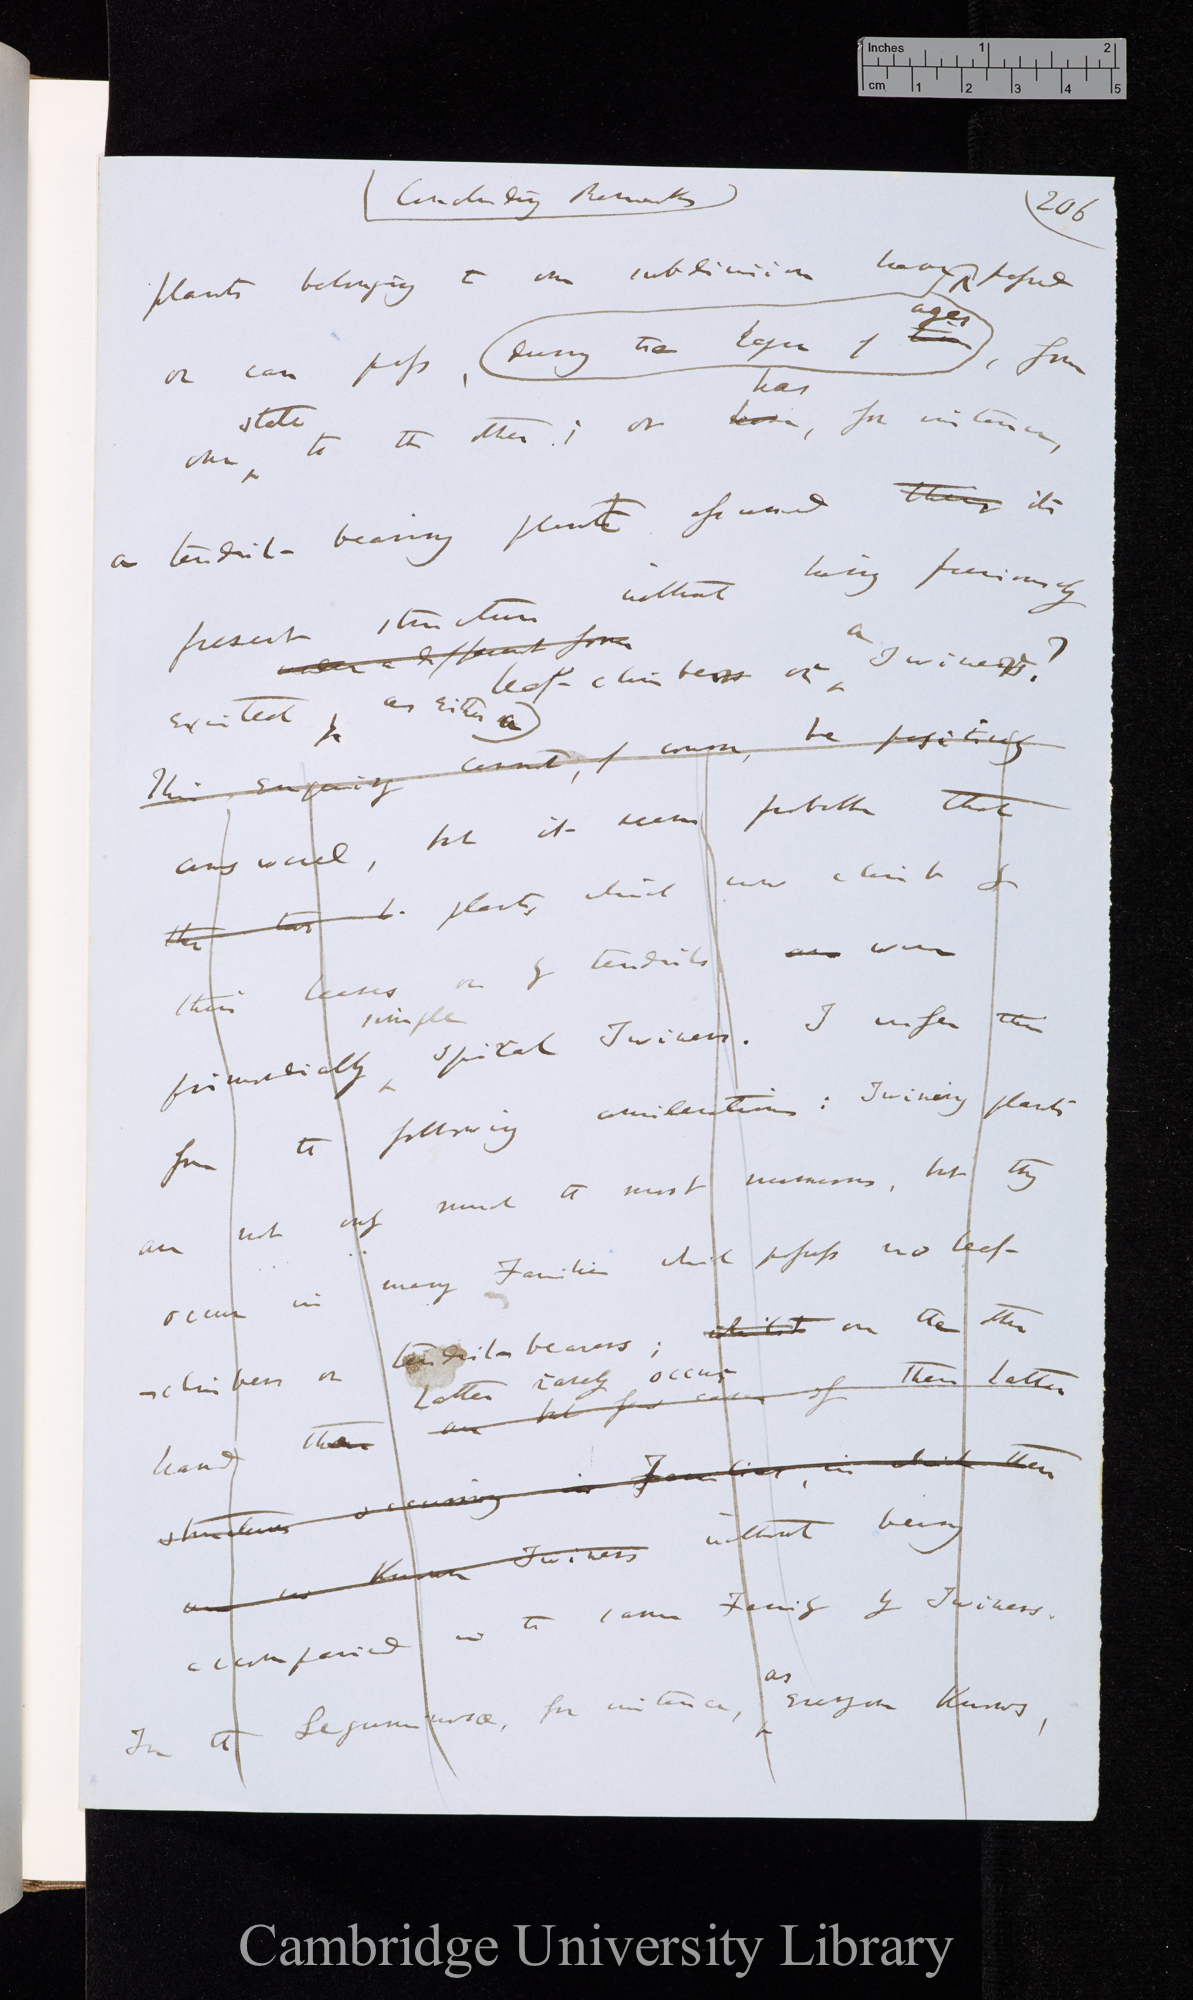 Inches 1 2
cm 1 2 3 4 5
Concluding Remarks
206
plants belonging to one subdivision have passed
or can pass, during the lapse of
ages
time, from
state
has
one to the other; or have, for instance,
a tendril-bearing plants assumed their its
present structure without having previously
under a different form
existed as either a leaf-climbers or a Twiners?
This enquiry cannot, of course, be positively
answered, but it seems probable that
the two plants which now climb by
their leaves or by tendrils are were
simple
primordially spiral Twiners. I infer this
from the following considerations: Twining plants
are not only much the most numerous, but they
occur in many Families which possess no leaf-
-climbers or tendril-bearers; whilst on the other
latter rarely occur
hand these are but few cases of these latter
structures occurring in Families, in which there
are no known Twiners without being
accompanied in the same Family by Twiners.
as
In the Leguminosæ, for instance, everyone knows,
Cambridge University Library